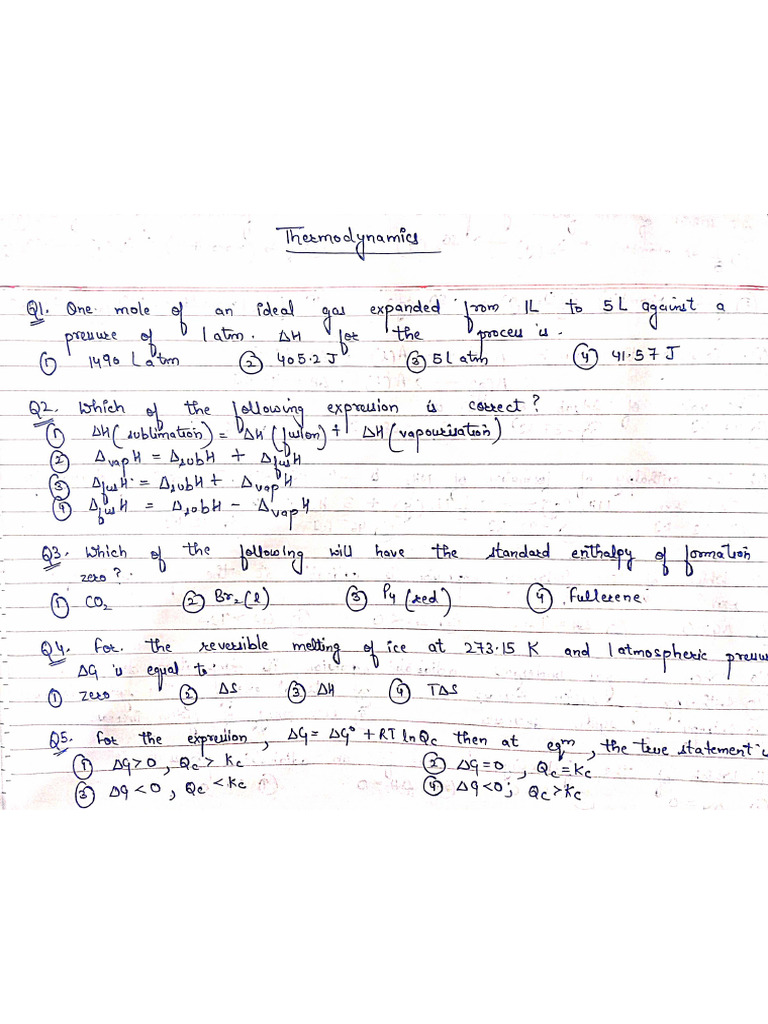 Thermodynamics
Q1. One mole of an ideal gas expanded from 1L to 5L against a
pressure of 1 atm. ΔH for the process is.
① 1490 L atm ② 405.2 J ③ 5 L atm ④ 41.57 J
Q2. Which of the following expression is correct?
① ΔH(sublimation) = ΔH(fusion) + ΔH(vapourisation)
② ΔvapH = ΔsubH + ΔfusH
③ ΔfusH = ΔsubH + ΔvapH
④ ΔfusH = ΔsubH - ΔvapH
Q3. Which of the following will have the standard enthalpy of formation
zero?
① CO₂ ② Br₂(l) ③ P₄(red) ④ Fullerene
Q4. For the reversible melting of ice at 273.15 K and 1 atmospheric pressure
ΔG is equal to
① zero ② ΔS ③ ΔH ④ TΔS
Q5. For the expression, ΔG = ΔG° + RT ln Qc then at eqm, the true statement is
① ΔG>0, Qc > Kc ② ΔG=0, Qc=Kc
③ ΔG<0, Qc <Kc ④ ΔG<0; Qc>Kc